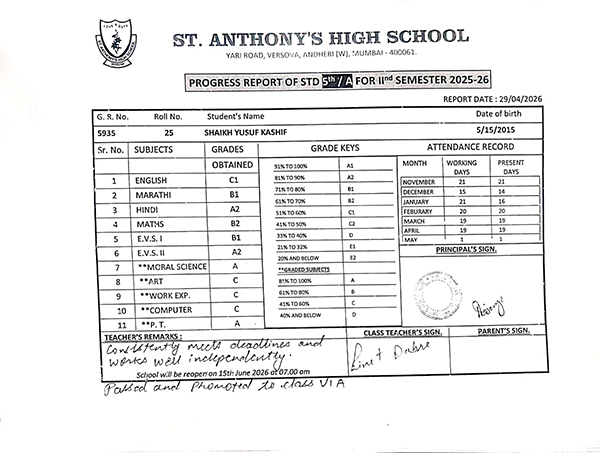 ST. ANTHONY'S HIGH SCHOOL
YARI ROAD, VERSOVA, ANDHERI (W), MUMBAI - 400061.
PROGRESS REPORT OF STD 5th / A FOR IInd SEMESTER 2025-26
REPORT DATE : 29/04/2026
G. R. No. Roll No. Student's Name Date of birth
5935 25 SHAIKH YUSUF KASHIF 5/15/2015
Sr. No. SUBJECTS GRADES OBTAINED
1 ENGLISH C1
2 MARATHI B1
3 HINDI A2
4 MATHS B2
5 E.V.S. I B1
6 E.V.S. II A2
7 **MORAL SCIENCE A
8 **ART C
9 **WORK EXP. C
10 **COMPUTER C
11 **P. T. A
GRADE KEYS
91% TO 100% A1
81% TO 90% A2
71% TO 80% B1
61% TO 70% B2
51% TO 60% C1
41% TO 50% C2
33% TO 40% D
21% TO 32% E1
20% AND BELOW E2
**GRADED SUBJECTS
81% TO 100% A
61% TO 80% B
41% TO 60% C
40% AND BELOW D
ATTENDANCE RECORD
MONTH WORKING DAYS PRESENT DAYS
NOVEMBER 21 21
DECEMBER 15 14
JANUARY 21 16
FEBURARY 20 20
MARCH 19 19
APRIL 19 19
MAY 1 1
PRINCIPAL'S SIGN.
TEACHER'S REMARKS :
Consistently meets deadlines and
works well independently.
School will be reopen on 15th June 2026 at 07.00 am
CLASS TEACHER'S SIGN.
PARENT'S SIGN.
Passed and promoted to class VI A